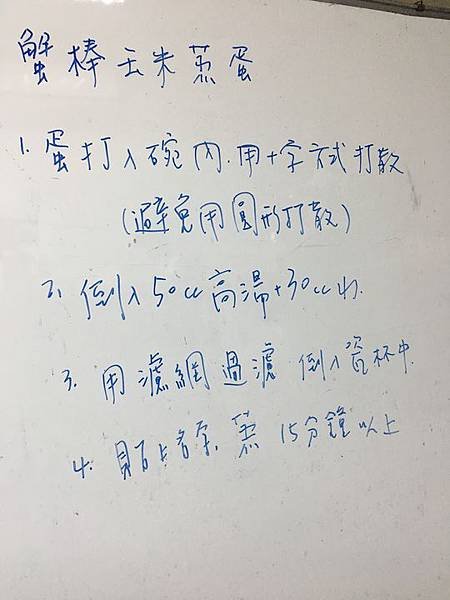 蟹棒玉米蒸蛋
1. 蛋打入碗內.用十字方式打散
(避免用圓形打散)
2. 倒入50cc高湯+30cc水.
3. 用濾網過濾 倒入瓷杯中.
4. 蒸 15分鐘以上